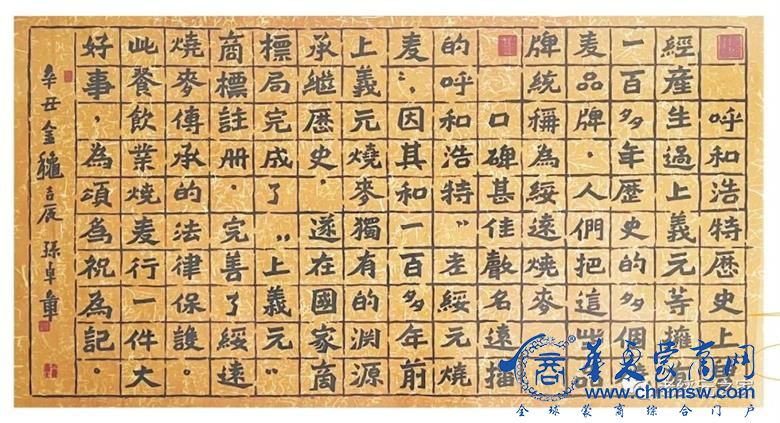 呼和浩特歷史上
經產生過上義元等擁有
一百多年歷史的多個
麦品牌。人們把這些品
牌統稱為綏遠燒麥
口碑甚佳聲名遠播
的呼和浩特“老綏元燒
麦”,因其和一百多年前
上義元燒麥獨有的渊源
承继歷史。遂在國家商
標局完成了“上義元”
商標註册。完善了綏遠
燒麥傳承的法律保護。
此餐飲業燒麦行一件大
好事,為頌為祝為記。
辛丑金龝吉辰 孫卓章
商
华夏蒙商网
www.chnmsw.com
全球蒙商综合门户